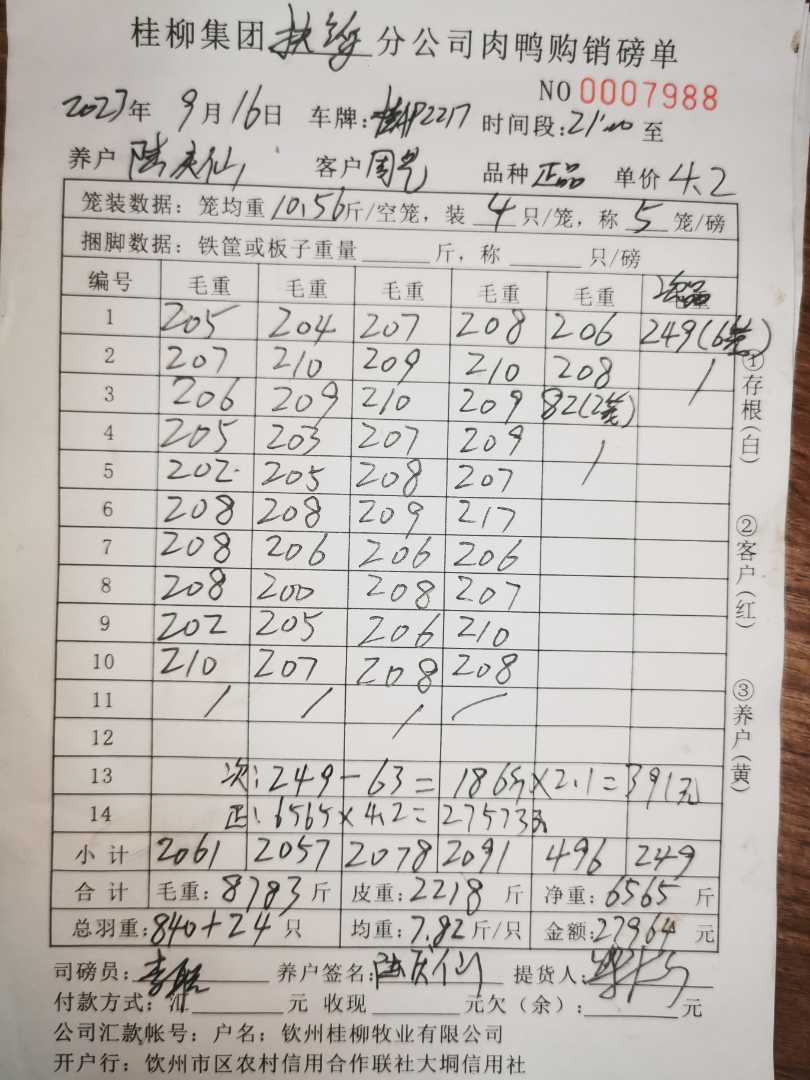 桂柳集团 扶绥 分公司肉鸭购销磅单
NO 0007988
2023年 9月16日 车牌: 2217 时间段:21:00 至
养户 陆庆仙 客户 周 品种 正品 单价 4.2
笼装数据: 笼均重 10.56 斤/空笼, 装 4 只/笼, 称 5 笼/磅
捆脚数据: 铁筐或板子重量 斤, 称 只/磅
编号 毛重 毛重 毛重 毛重 毛重 次品
1 205 204 207 208 206 249(6笼)
2 207 210 209 210 208 /
3 206 209 210 209 82(2笼)
4 205 203 207 209 /
5 202 205 208 207
6 208 208 209 217
7 208 206 206 206
8 208 200 208 207
9 202 205 206 210
10 210 207 208 208
11 / / / /
12
13 次: 249-63= 186斤×2.1=391元
14 正: 6565×4.2=27573元
小计 2061 2057 2078 2091 496 249
合计 毛重: 8783 斤 皮重: 2218 斤 净重: 6565 斤
总羽重: 840+24 只 均重: 7.82 斤/只 金额: 27964 元
司磅员: 养户签名: 陆庆仙 提货人:
付款方式: 汇 元 收现 元欠(余): 元
公司汇款帐号: 户名: 钦州桂柳牧业有限公司
开户行: 钦州市区农村信用合作联社大垌信用社
①存根(白)
②客户(红)
③养户(黄)